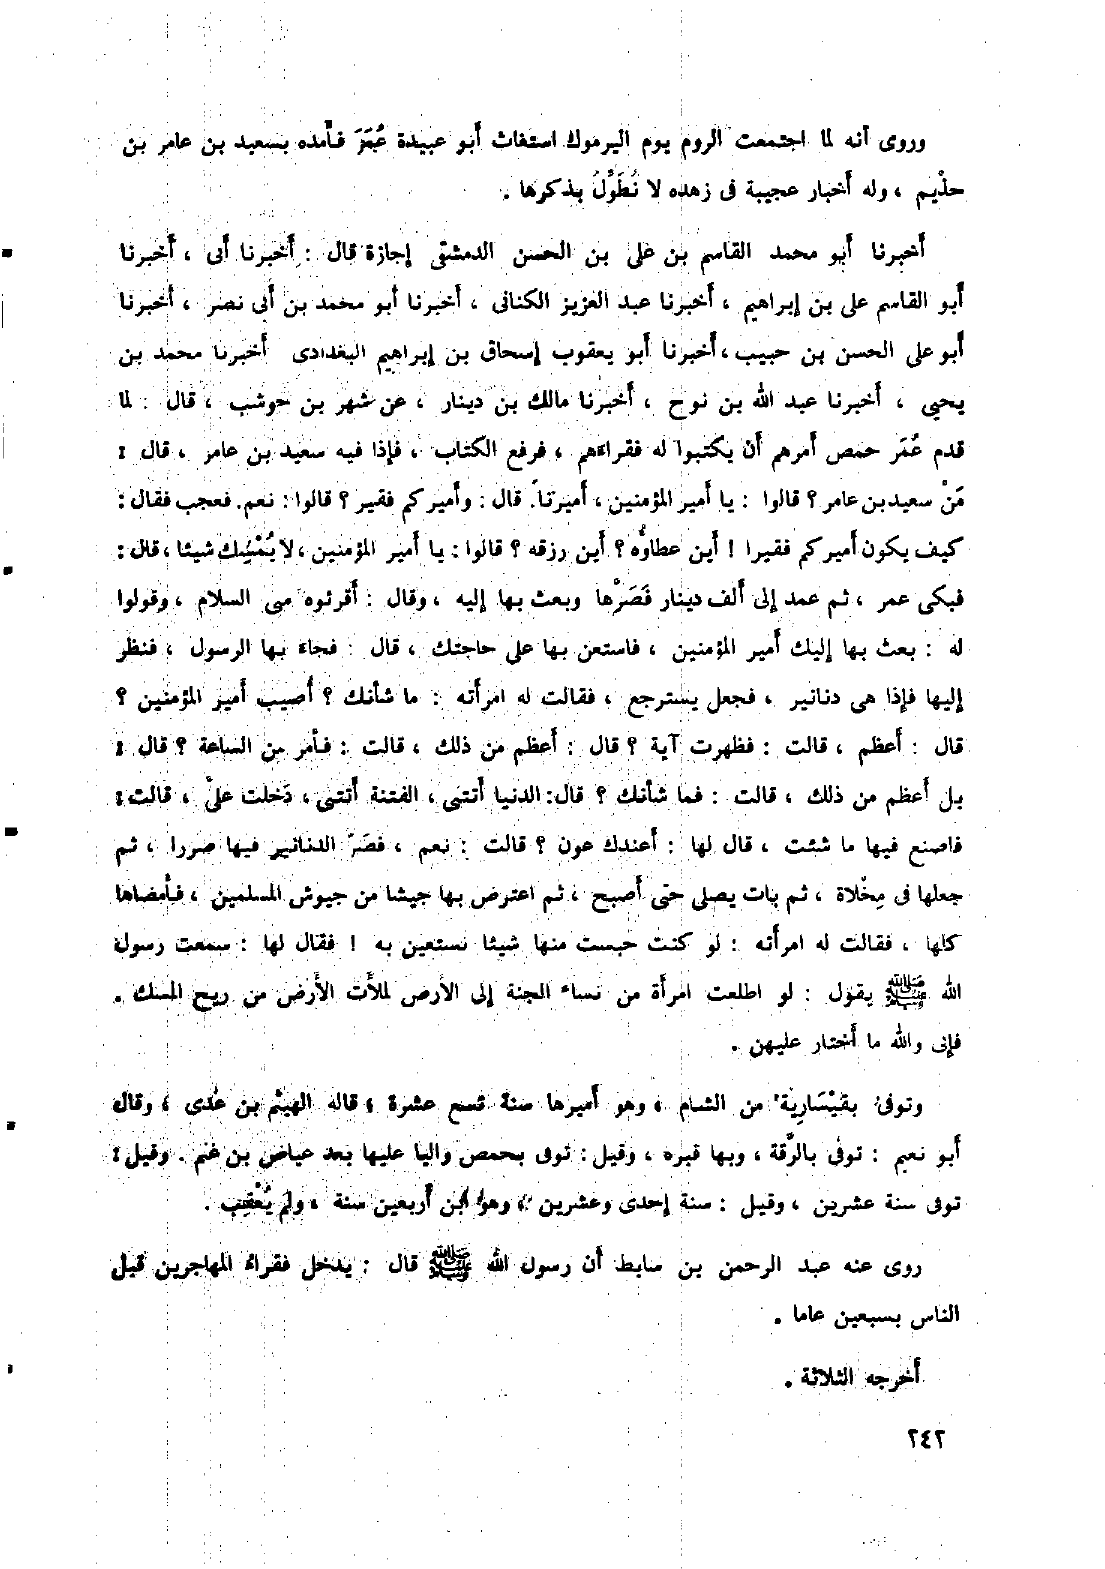 وروى أنه لما اجتمعت الروم يوم اليرموك استغاث أبو عبيدة عُمَرَ فأمده بسعيد بن عامر بن
حذْيم ، وله أخبار عجيبة فى زهده لا نُطَوِّلُ بذكرها .
أخبرنا أبو محمد القاسم بن على بن الحسن الدمشقى إجازة قال : أخبرنا أبى ، أخبرنا
أبو القاسم على بن إبراهيم ، أخبرنا عبد العزيز الكنانى ، أخبرنا أبو محمد بن أبى نصر ، أخبرنا
أبو على الحسن بن حبيب ، أخبرنا أبو يعقوب إسحاق بن إبراهيم البغدادى أخبرنا محمد بن
يحيى ، أخبرنا عبد الله بن نوح ، أخبرنا مالك بن دينار ، عن شهر بن حوشب ، قال : لما
قدم عُمَر حمص أمرهم أن يكتبوا له فقراءهم ، فرفع الكتاب ، فإذا فيه سعيد بن عامر ، قال :
مَنْ سعيد بن عامر ؟ قالوا : يا أمير المؤمنين ، أميرنا. قال : وأميركم فقير ؟ قالوا : نعم. فعجب فقال :
كيف يكون أميركم فقيرا ! أين عطاؤُه ؟ أين رزقه ؟ قالوا : يا أمير المؤمنين ، لا يُمْسِك شيئا ، قال :
فبكى عمر ، ثم عمد إلى ألف دينار فَصَرَّها وبعث بها إليه ، وقال : أقرئوه منى السلام ، وقولوا
له : بعث بها إليك أمير المؤمنين ، فاستعن بها على حاجتك ، قال : فجاءَ بها الرسول ، فنظر
إليها فإذا هى دنانير ، فجعل يسترجع ، فقالت له امرأته : ما شأنك ؟ أُصيب أمير المؤمنين ؟
قال : أعظم ، قالت : فظهرت آية ؟ قال : أعظم من ذلك ، قالت : فأمر من الساعة ؟ قال :
بل أعظم من ذلك ، قالت : فما شأنك ؟ قال: الدنيا أتتنى ، الفتنة أتتنى ، دَخلت علىَّ ، قالت :
فاصنع فيها ما شئت ، قال لها : أعندك عون ؟ قالت : نعم ، فصَرّ الدنانير فيها صررا ، ثم
جعلها فى مِخْلاة ، ثم بات يصلى حتى أصبح ، ثم اعترض بها جيشا من جيوش المسلمين ، فأمضاها
كلها ، فقالت له امرأته : لو كنت حبست منها شيئا نستعين به ! فقال لها : سمعت رسول
الله ﷺ يقول : لو اطلعت امرأة من نساء الجنة إلى الأرض لملأت الأرض من ريح المسك .
فإنى والله ما أختار عليهن .
وتوفى بقَيْسَارِيَة من الشام ، وهو أميرها سنة تسع عشرة ، قاله الهيثم بن عدى ، وقال
أبو نعيم : توفى بالرَّقة ، وبها قبره ، وقيل : توفى بحمص واليا عليها بعد عياض بن غنم . وقيل :
توفى سنة عشرين ، وقيل : سنة إحدى وعشرين ، وهو ابن أربعين سنة ، ولم يُعْقِب .
روى عنه عبد الرحمن بن سابط أن رسول الله ﷺ قال : يدخل فقراءُ المهاجرين قبل
الناس بسبعين عاما .
أخرجه الثلاثة .
٢٤٢